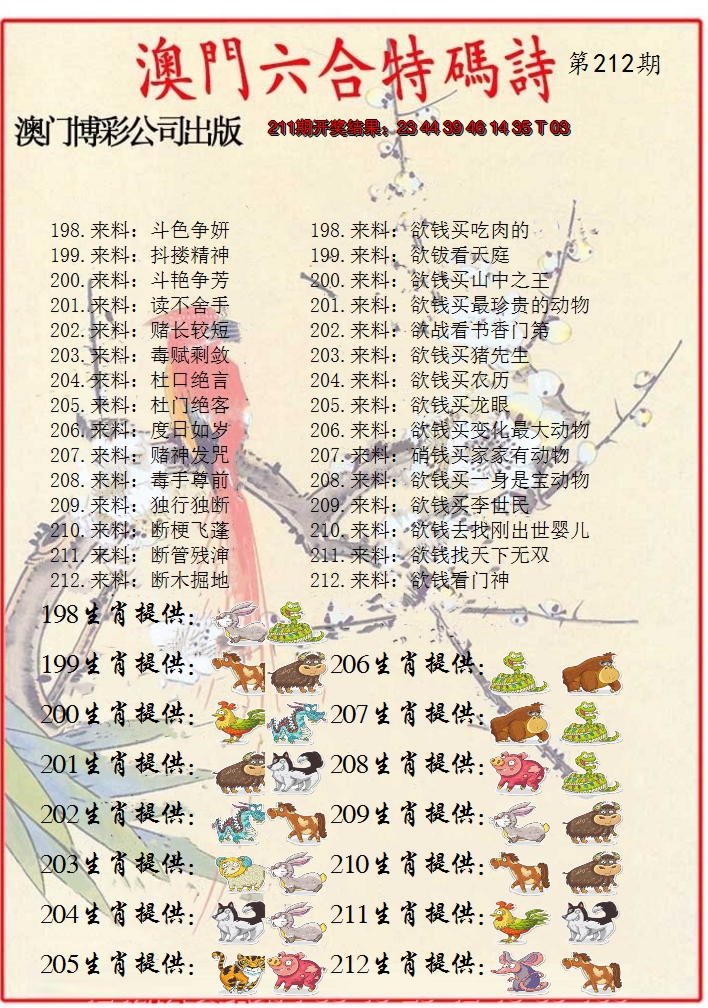 澳門六合特碼詩 第212期
澳门博彩公司出版 211期开奖结果：23 44 39 46 14 35 T 03
198.来料：斗色争妍 198.来料：欲钱买吃肉的
199.来料：抖搂精神 199.来料：欲钹看天庭
200.来料：斗艳争芳 200.来料：欲钱买山中之王
201.来料：读不舍手 201.来料：欲钱买最珍贵的动物
202.来料：赌长较短 202.来料：欲战看书香门第
203.来料：毒赋剩敛 203.来料：欲钱买猪先生
204.来料：杜口绝言 204.来料：欲钱买农历
205.来料：杜门绝客 205.来料：欲钱买龙眼
206.来料：度日如岁 206.来料：欲钱买变化最大动物
207.来料：赌神发咒 207.来料：硝钱买家家有动物
208.来料：毒手尊前 208.来料：欲钱买一身是宝动物
209.来料：独行独断 209.来料：欲钱买李世民
210.来料：断梗飞蓬 210.来料：欲钱去找刚出世婴儿
211.来料：断管残渖 211.来料：欲钱找天下无双
212.来料：断木掘地 212.来料：欲钱看门神
198生肖提供：
199生肖提供： 206生肖提供：
200生肖提供： 207生肖提供：
201生肖提供： 208生肖提供：
202生肖提供： 209生肖提供：
203生肖提供： 210生肖提供：
204生肖提供： 211生肖提供：
205生肖提供： 212生肖提供：